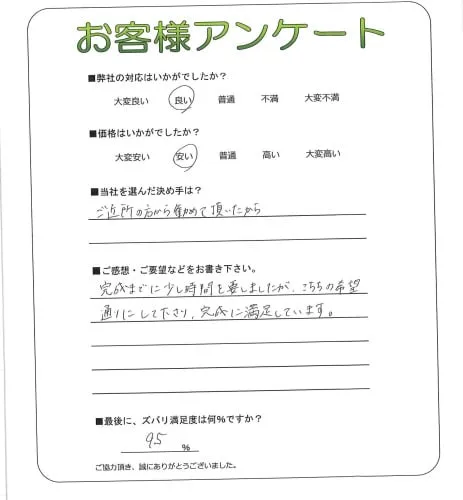 お客様アンケート
■弊社の対応はいかがでしたか？
大変良い 良い 普通 不満 大変不満
■価格はいかがでしたか？
大変安い 安い 普通 高い 大変高い
■当社を選んだ決め手は？
ご近所の方から勧めて頂いたから
■ご感想・ご要望などをお書き下さい。
完成までに少し時間を要しましたが、こちらの希望
通りにして下さり、完成に満足しています。
■最後に、ズバリ満足度は何%ですか？
95 %
ご協力頂き、誠にありがとうございました。